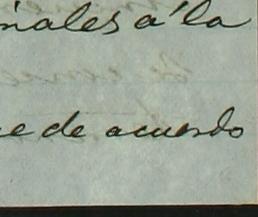 nales á la
e de acuerdo